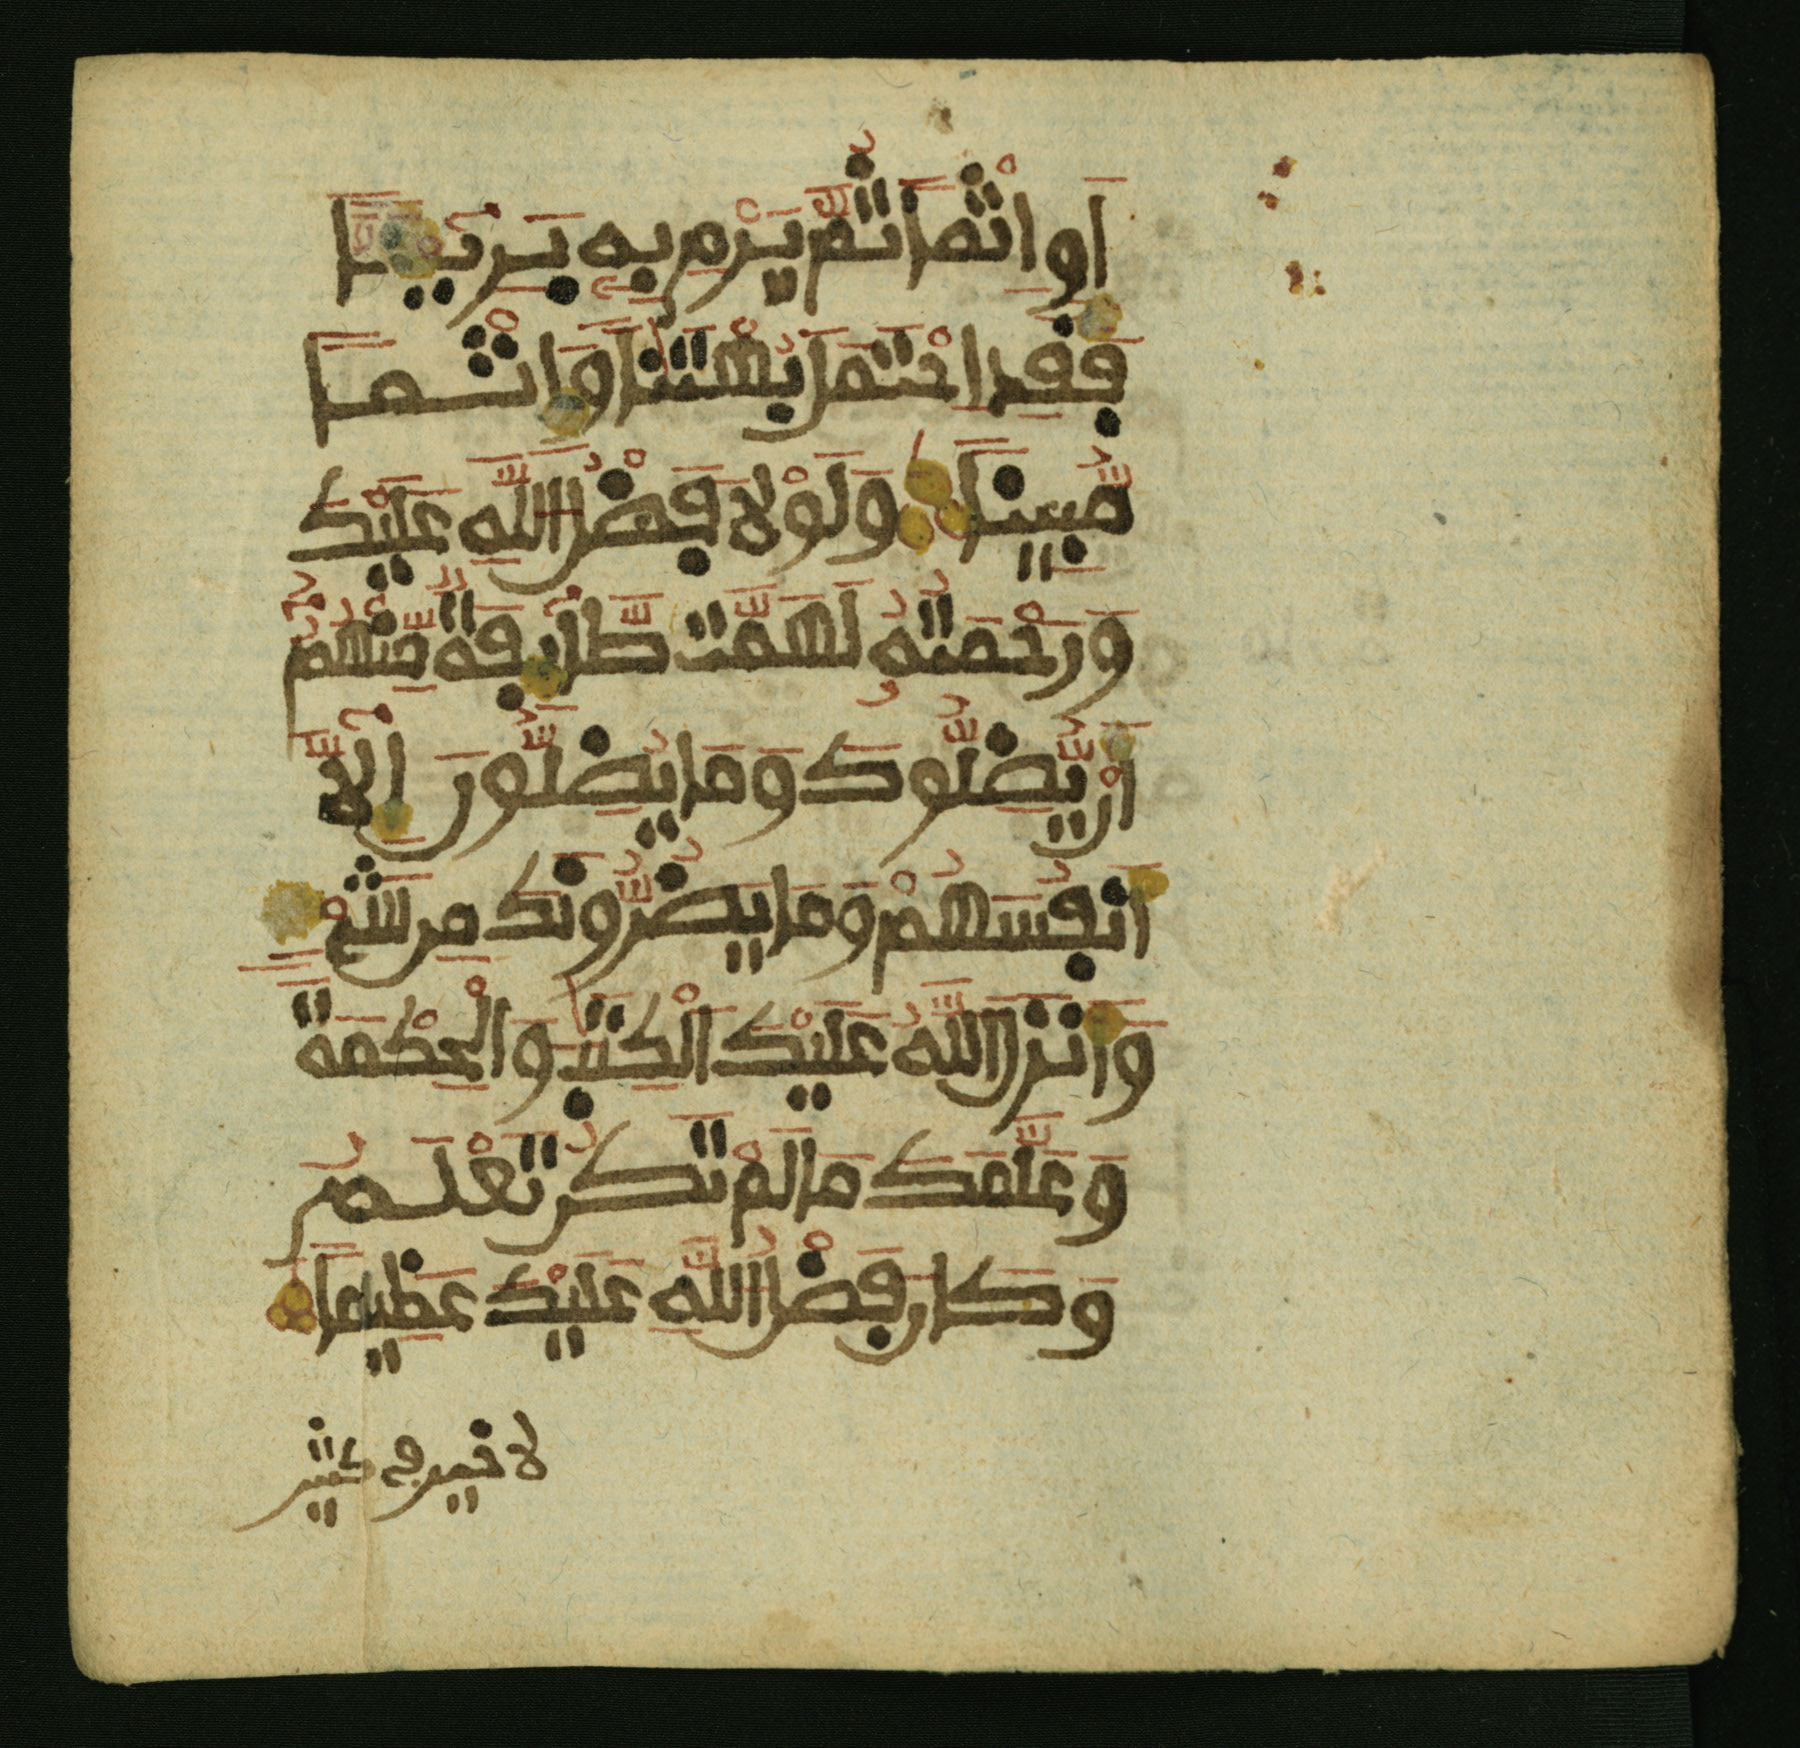 اَوِ اِثْمًا ثُمَّ يَرْمِ بِهِ بَرِيـًٔا
فَقَدِ اِحْتَمَلَ بُهْتَٰنًا وَإِثْمًا
مُّبِينًا وَلَوْلَا فَضْلُ اللَّهِ عَلَيْكَ
وَرَحْمَتُهُ لَهَمَّت طَّآئِفَةٌ مِّنْهُمُ
أَنْ يُّضِلُّوكَ وَمَا يُضِلُّونَ إِلَّآ
أَنفُسَهُمْ وَمَا يَضُرُّونَكَ مِن شَيْءٍ
وَأَنزَلَ اللَّهُ عَلَيْكَ الْكِتَٰبَ وَالْحِكْمَةَ
وَعَلَّمَكَ مَا لَمْ تَكُن تَعْلَمُ
وَكَانَ فَضْلُ اللَّهِ عَلَيْكَ عَظِيمًا
لا خير في كثير